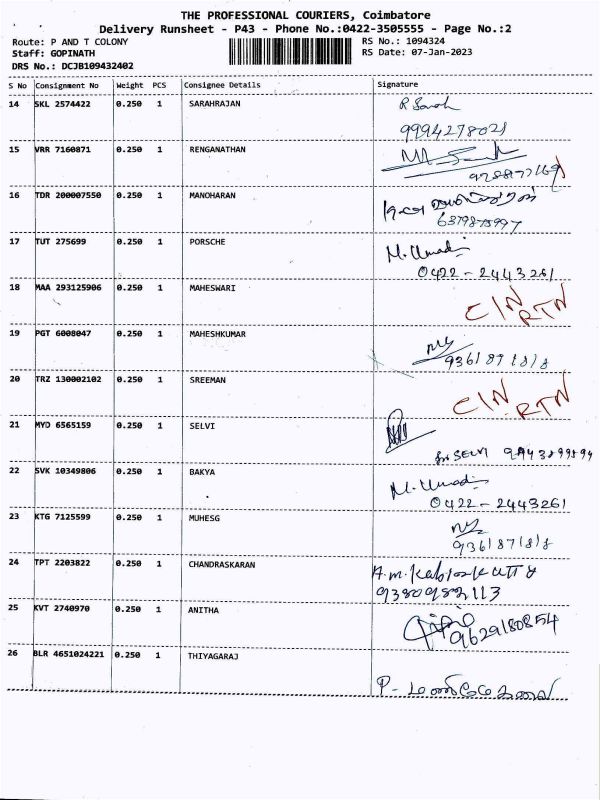 THE PROFESSIONAL COURIERS, Coimbatore
Delivery Runsheet - P43 - Phone No.:0422-3505555 - Page No.:2
Route: P AND T COLONY RS No.: 1094324
Staff: GOPINATH RS Date: 07-Jan-2023
DRS No.: DCJB109432402
S No Consignment No Weight PCS Consignee Details Signature
14 SKL 2574422 0.250 1 SARAHRAJAN
9994278021
15 VRR 7160871 0.250 1 RENGANATHAN
16 TDR 200007550 0.250 1 MANOHARAN
17 TUT 275699 0.250 1 PORSCHE M. Umadi
0422 - 2443261
18 MAA 293125906 0.250 1 MAHESWARI CIN RTN
19 PGT 6008047 0.250 1 MAHESHKUMAR
9361871818
20 TRZ 130002102 0.250 1 SREEMAN CIN RTN
21 MYD 6565159 0.250 1 SELVI
SELVI
22 SVK 10349806 0.250 1 BAKYA M. Umadi
0422 - 2443261
23 KTG 7125599 0.250 1 MUHESG
9361871818
24 TPT 2203822 0.250 1 CHANDRASKARAN
9380982113
25 KVT 2740970 0.250 1 ANITHA
9629180854
26 BLR 4651024221 0.250 1 THIYAGARAJ